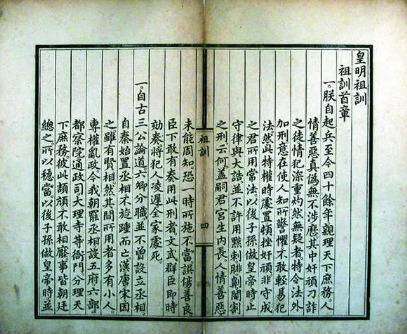 皇明祖訓
祖訓首章
一朕自起兵至今四十餘年親理天下庶務人
情善惡真偽無不涉歷其中奸頑刁詐
之徒情犯深重灼然無疑者特令法外
加刑意在使人知所警懼不敢輕易犯
法然此特權時處置頓挫奸頑非守成
之君所用常法以後子孫做皇帝時止
守律與大誥並不許用黥刺剕劓閹割
之刑云何蓋嗣君宮生內長人情善惡
祖訓
四
未能周知恐一時所施不當誤傷善良
臣下敢有奏用此刑者文武群臣即時
劾奏將犯人凌遲全家處死
一自古三公論道六卿分職並不曾設立丞相
自秦始置丞相不旋踵而亡漢唐宋因
之雖有賢相然其間所用者多有小人
專權亂政今我朝罷丞相設五府六部
都察院通政司大理寺等衙門分理天
下庶務彼此頡頏不敢相壓事皆朝廷
總之所以穩當以後子孫做皇帝時並